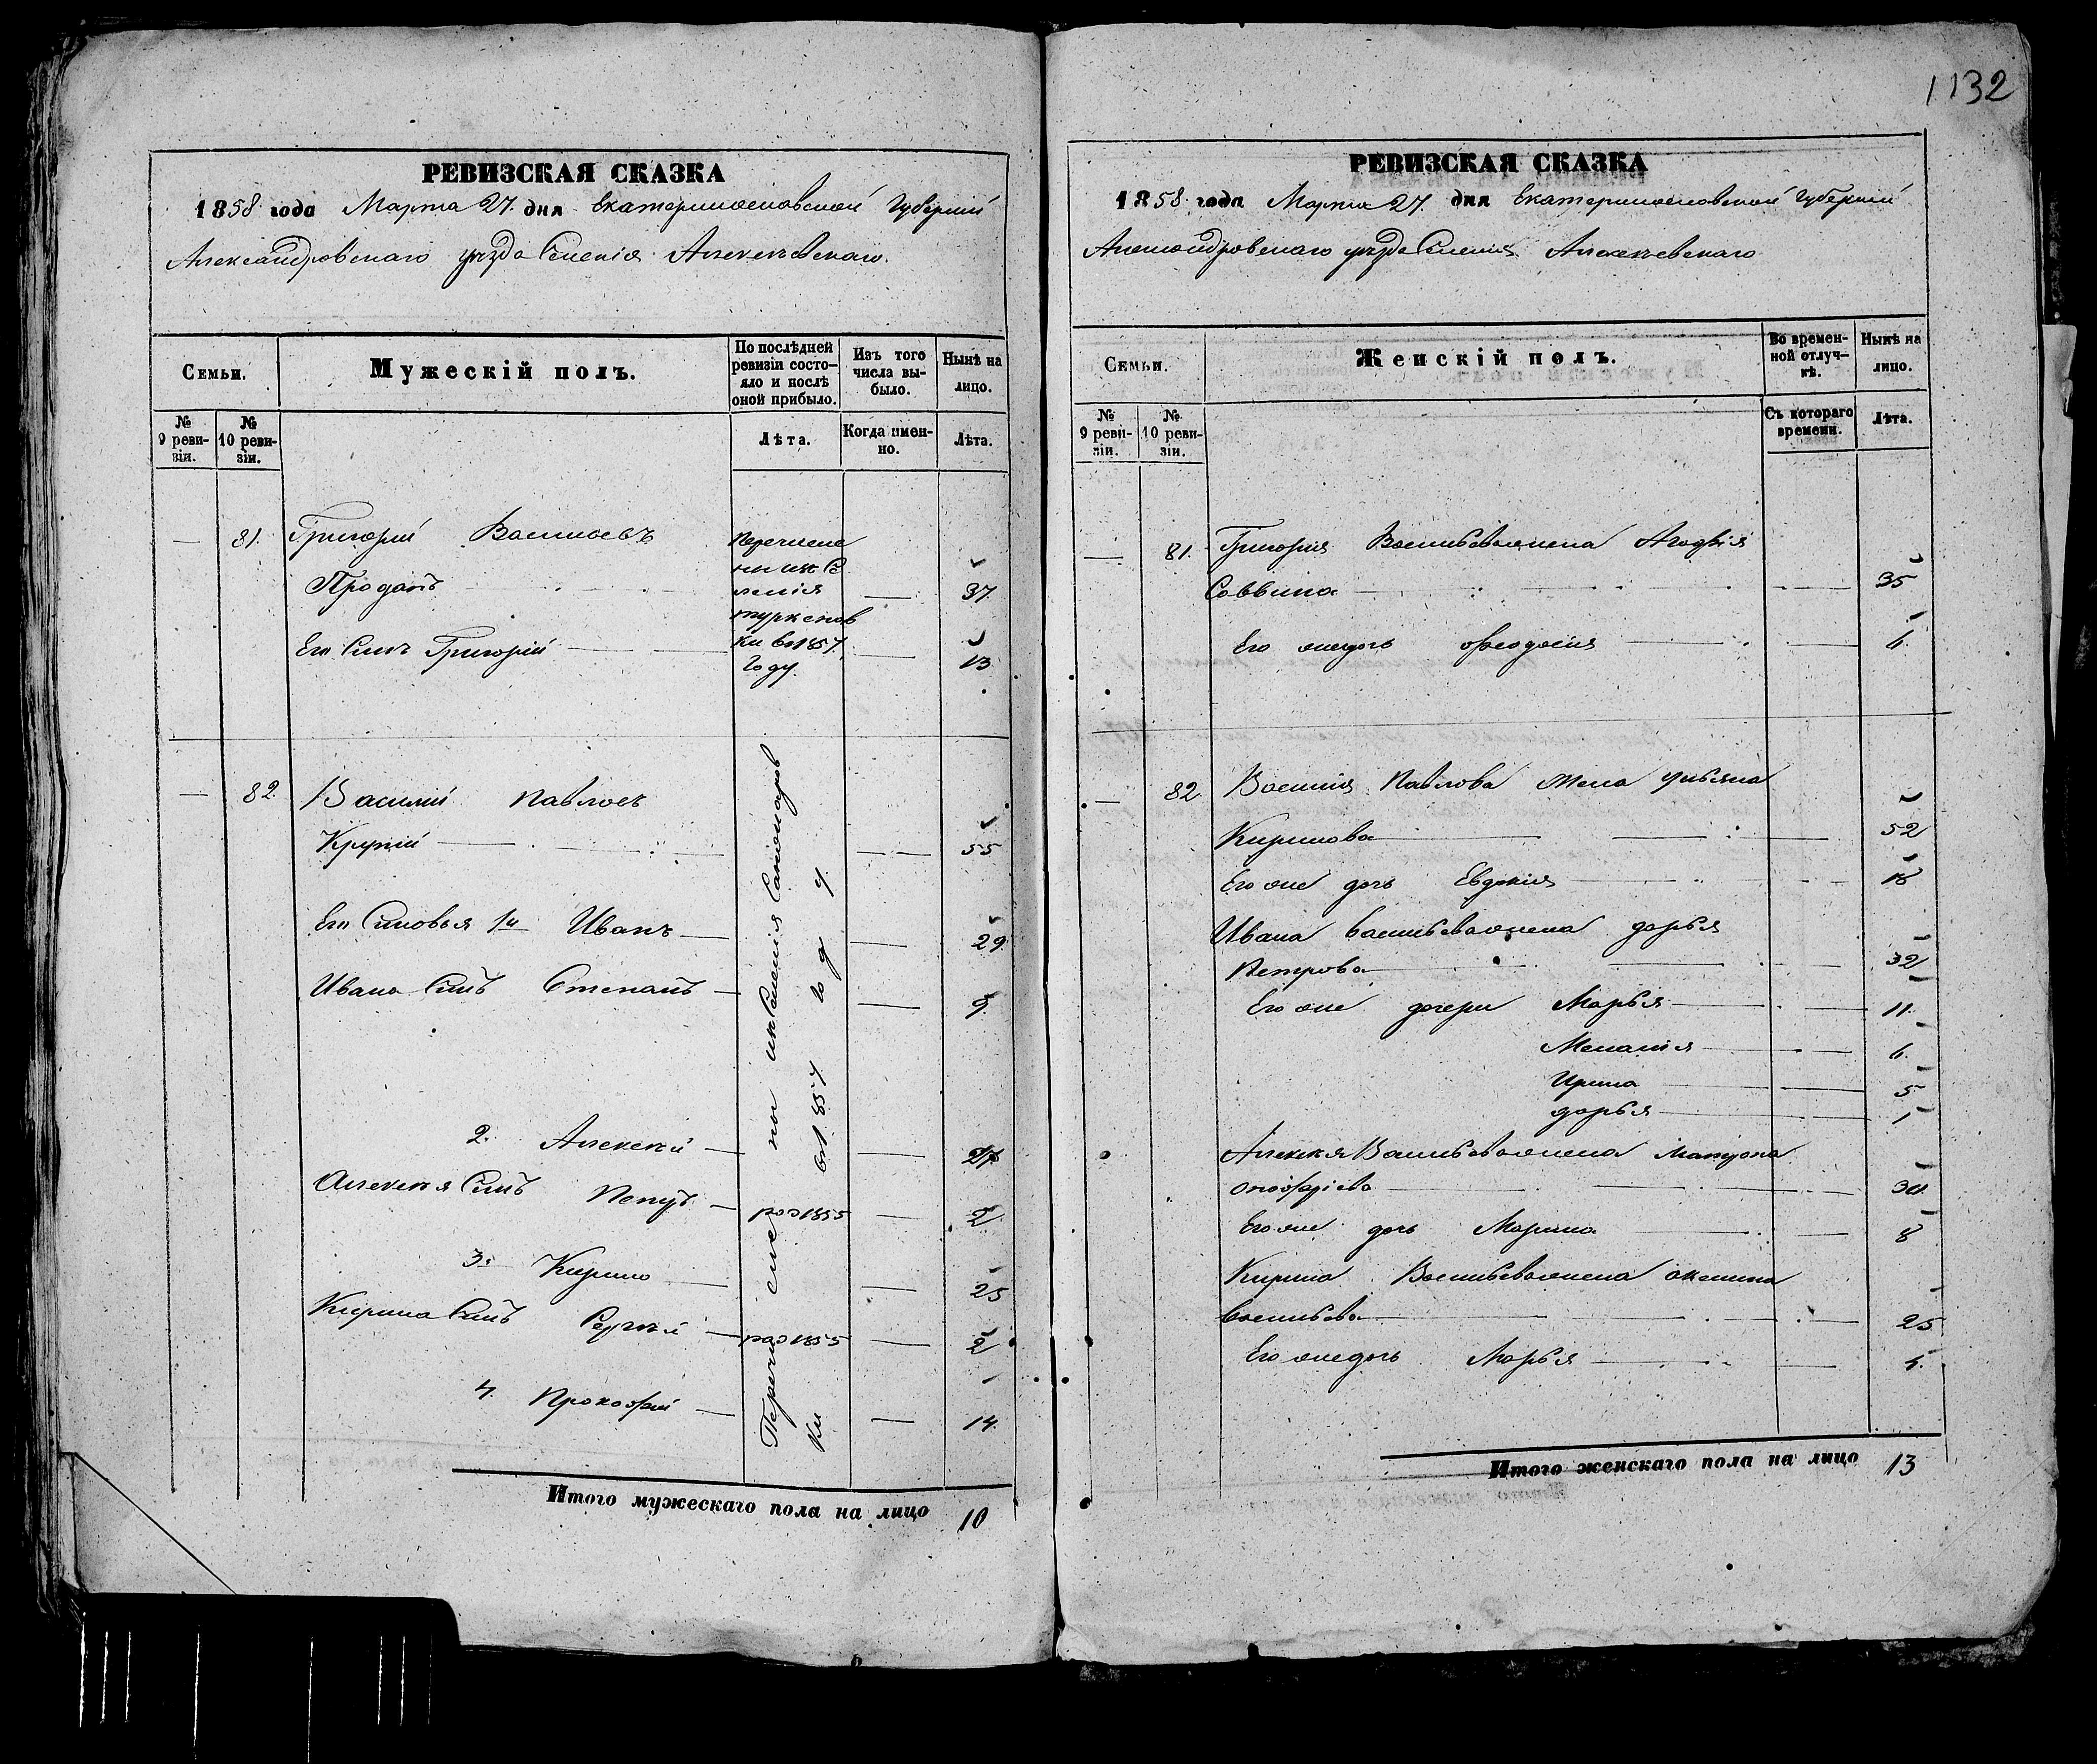 1132
РЕВИЗСКАЯ СКАЗКА
1858 года Марта 27. дня Екатеринославской Губерніи
Александровскаго уѣзда Селенія Алексѣевскаго.
Семьи.
Мужескій полъ.
По послѣдней ревизіи состояло и послѣ оной прибыло.
Изъ того числа выбыло.
Нынѣ на лицо.
№ 9 ревизіи.
№ 10 ревизіи.
Лѣта.
Когда именно.
Лѣта.
— 81. Григорій Васильевъ
Проданъ — 37.
Его Сынъ Григорій — 13
Перечисле
ны изъ Се
ленія
туркенов
ки въ 1857
Году.
— 82. Василій Павловъ
Крупій — 55
Его Сыновья 1й Иванъ — 29.
Ивана Сынъ Степанъ — 9.
2. Алексѣй — 27
Алексѣя Сынъ — роз 1855 — 2
3. Кирило — 25
Кирила Сынъ Сергѣй — роз 1855 — 2
4. Прокофій — 14.
Перечислены изъ Селенія
ки въ 1857 году
Итого мужескаго пола на лицо 10
РЕВИЗСКАЯ СКАЗКА
1858 года Марта 27. дня Екатеринославской Губерніи
Александровскаго уѣзда Селенія Алексѣевскаго
Семьи.
Женскій полъ.
Во временной отлучкѣ.
Нынѣ на лицо.
№ 9 ревизіи.
№ 10 ревизіи.
Съ котораго времени.
Лѣта.
— 81. Григорія Васильева жена Агафія
Саввина — 35
Его же дочь Феодосія — 6.
— 82 Василія Павлова жена Ульяна
Кирилова — 52
Его же дочь Евдокія — 18
Ивана Васильева жена Дарья
Петрова — 32
Его же дочери Марья — 11.
Меланія — 6.
Ирина — 5
Дарья — 1
Алексѣя Васильева жена Матрона
Онофріева — 30.
Его же дочь Марина — 8
Кирила Васильева жена Акелина
Васильева — 25
Его же дочь Марья — 4.
Итого женскаго пола на лицо 13